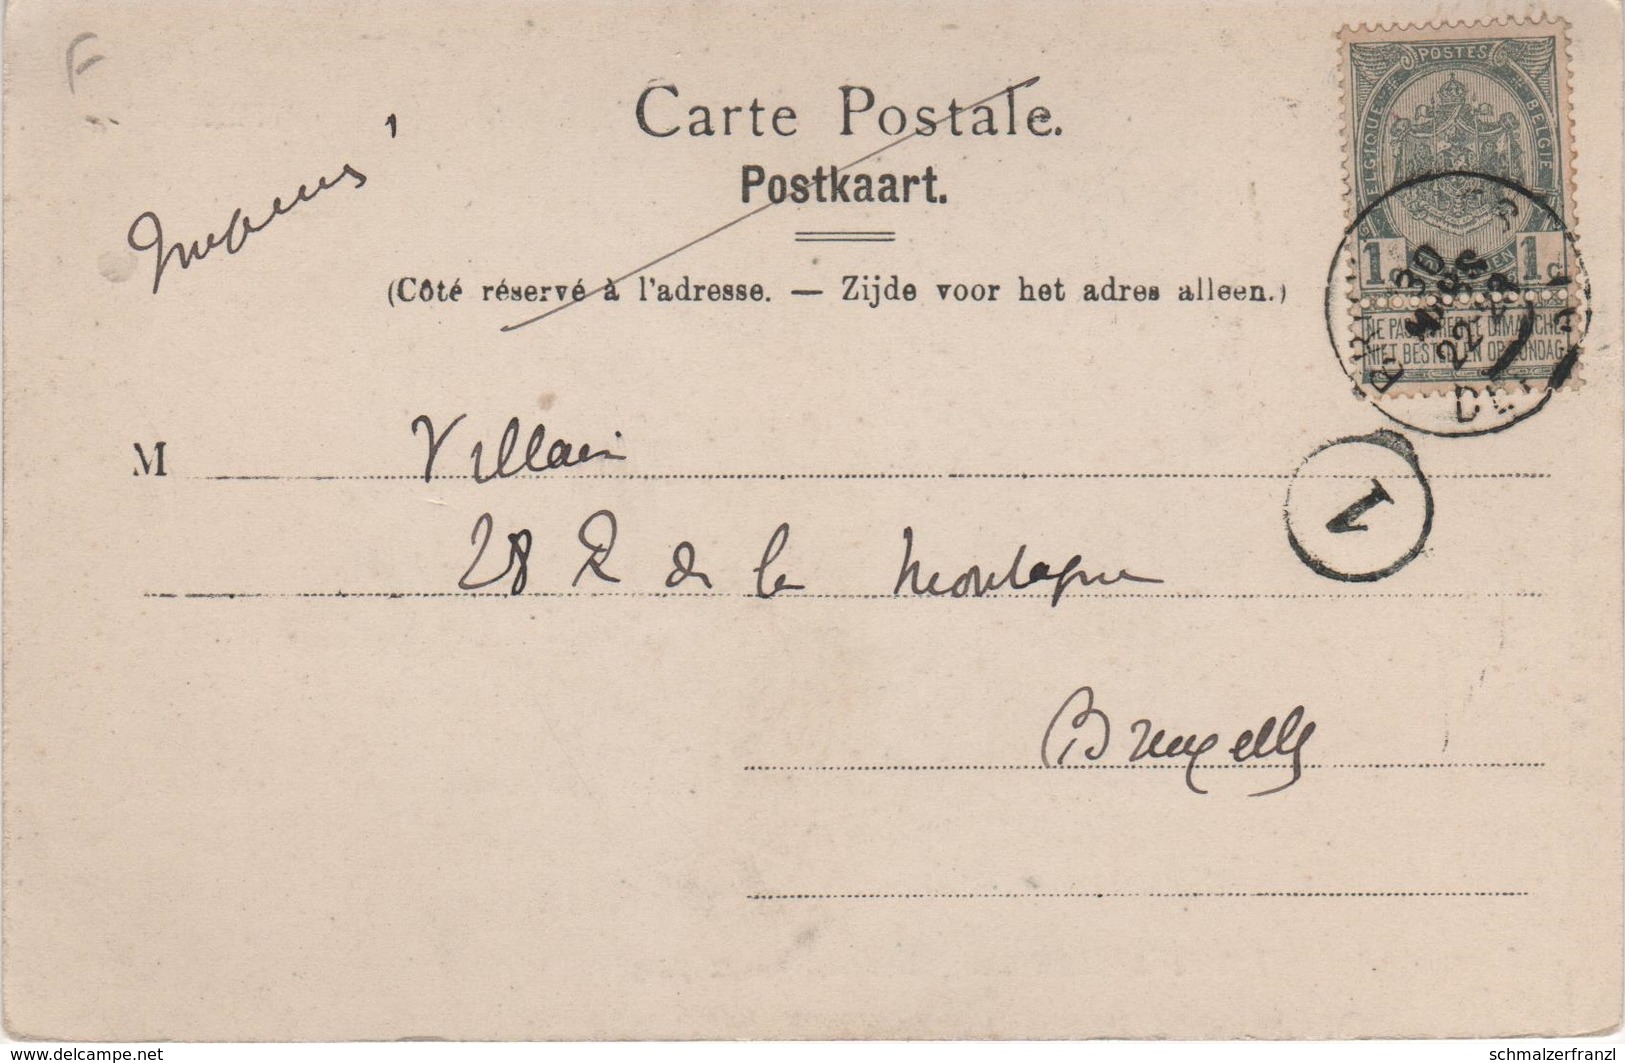 F
Carte Postale.
Postkaart.
(Côté réservé à l'adresse. — Zijde voor het adres alleen.)
POSTES
BELGIQUE
BELGIE
1c 1c
NE PAS LIVRER LE DIMANCHE
NIET BESTELLEN OP ZONDAG
30
22-23
1
M Villain
28 R de la Montagne
Bruxelles
www.delcampe.net
schmalzerfranzl